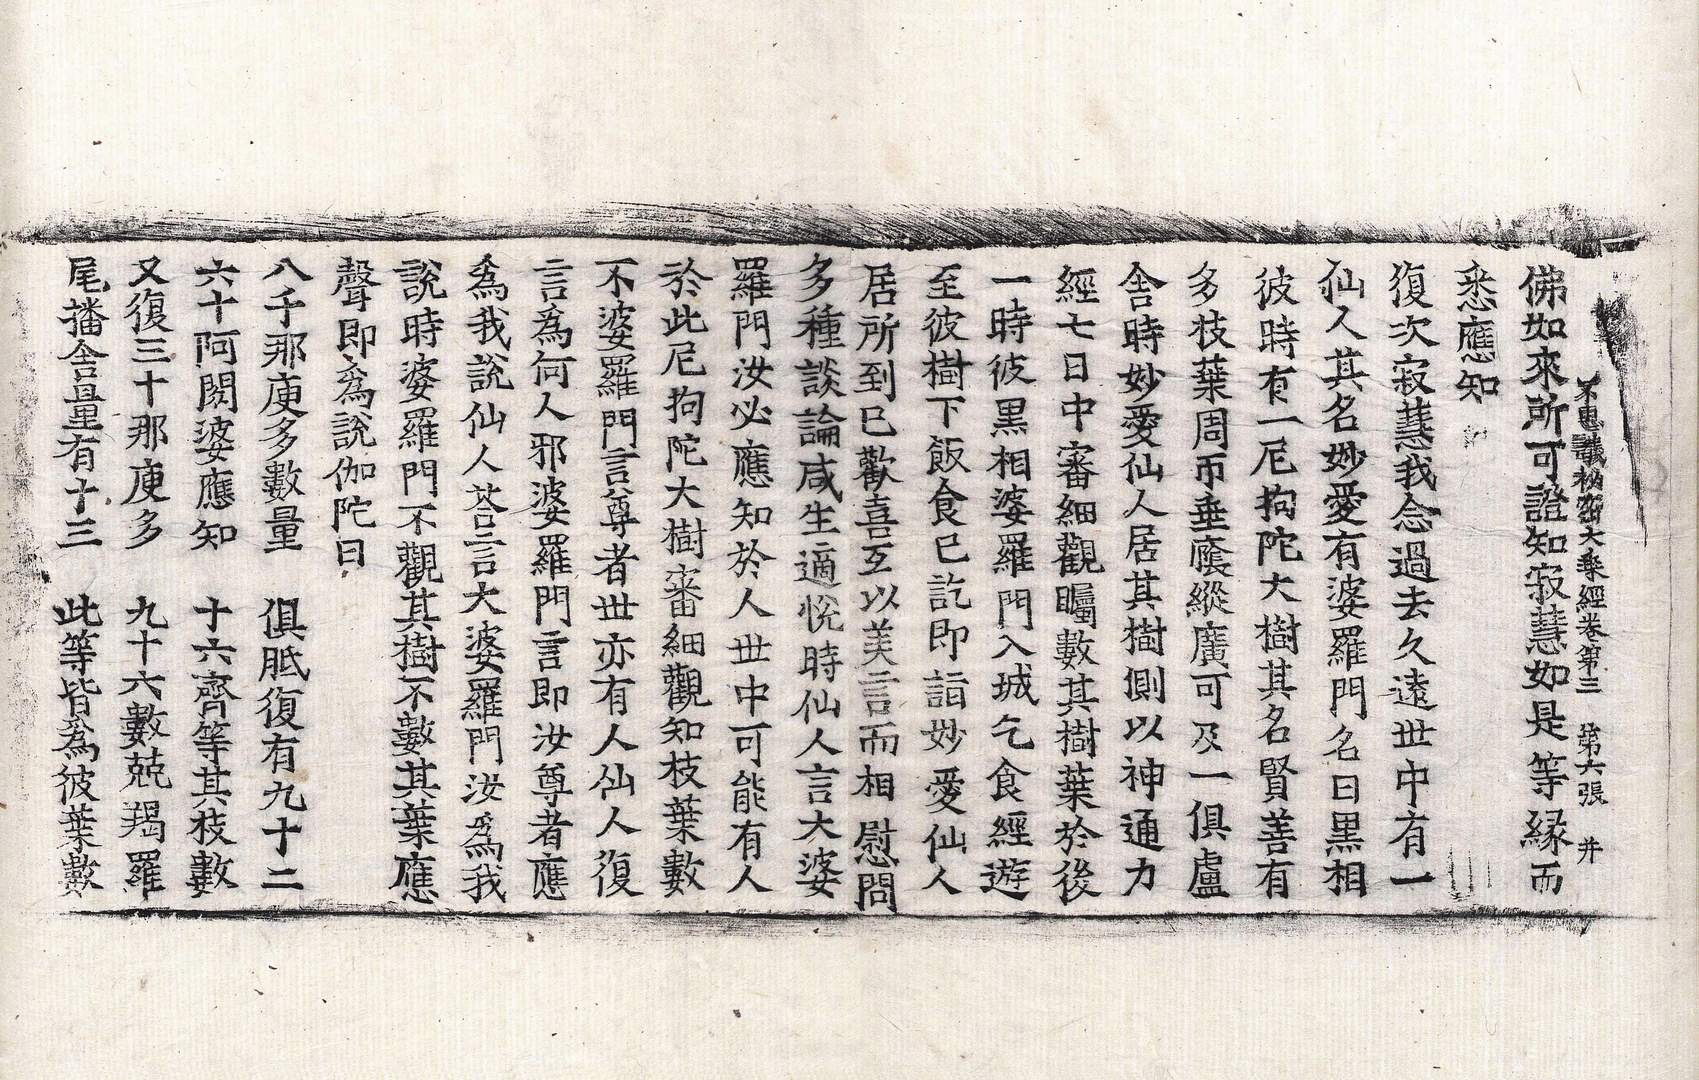 不思議祕密大乘經卷第三　第六張　并
佛如來所可證知寂慧如是等緣而
悉應知
復次寂慧我念過去久遠世中有一
仙人其名妙愛有婆羅門名曰黑相
彼時有一尼拘陀大樹其名賢善有
多枝葉周帀垂廕縱廣可及一俱盧
舍時妙愛仙人居其樹側以神通力
經七日中審細觀矚數其樹葉於後
一時彼黑相婆羅門入城乞食經遊
至彼樹下飯食已訖即詣妙愛仙人
居所到已歡喜互以美言而相慰問
多種談論咸生適悅時仙人言大婆
羅門汝必應知於人世中可能有人
於此尼拘陀大樹審細觀知枝葉數
不婆羅門言尊者世亦有人仙人復
言爲何人邪婆羅門言即汝尊者應
爲我說仙人荅言大婆羅門汝爲我
說時婆羅門不觀其樹不數其葉應
聲即爲說伽陀曰
八千那庾多數量　俱胝復有九十二
六十阿閦婆應知　十六齊等其枝數
又復三十那庾多　九十六數兢羯羅
尾播舍量有十三　此等皆爲彼葉數